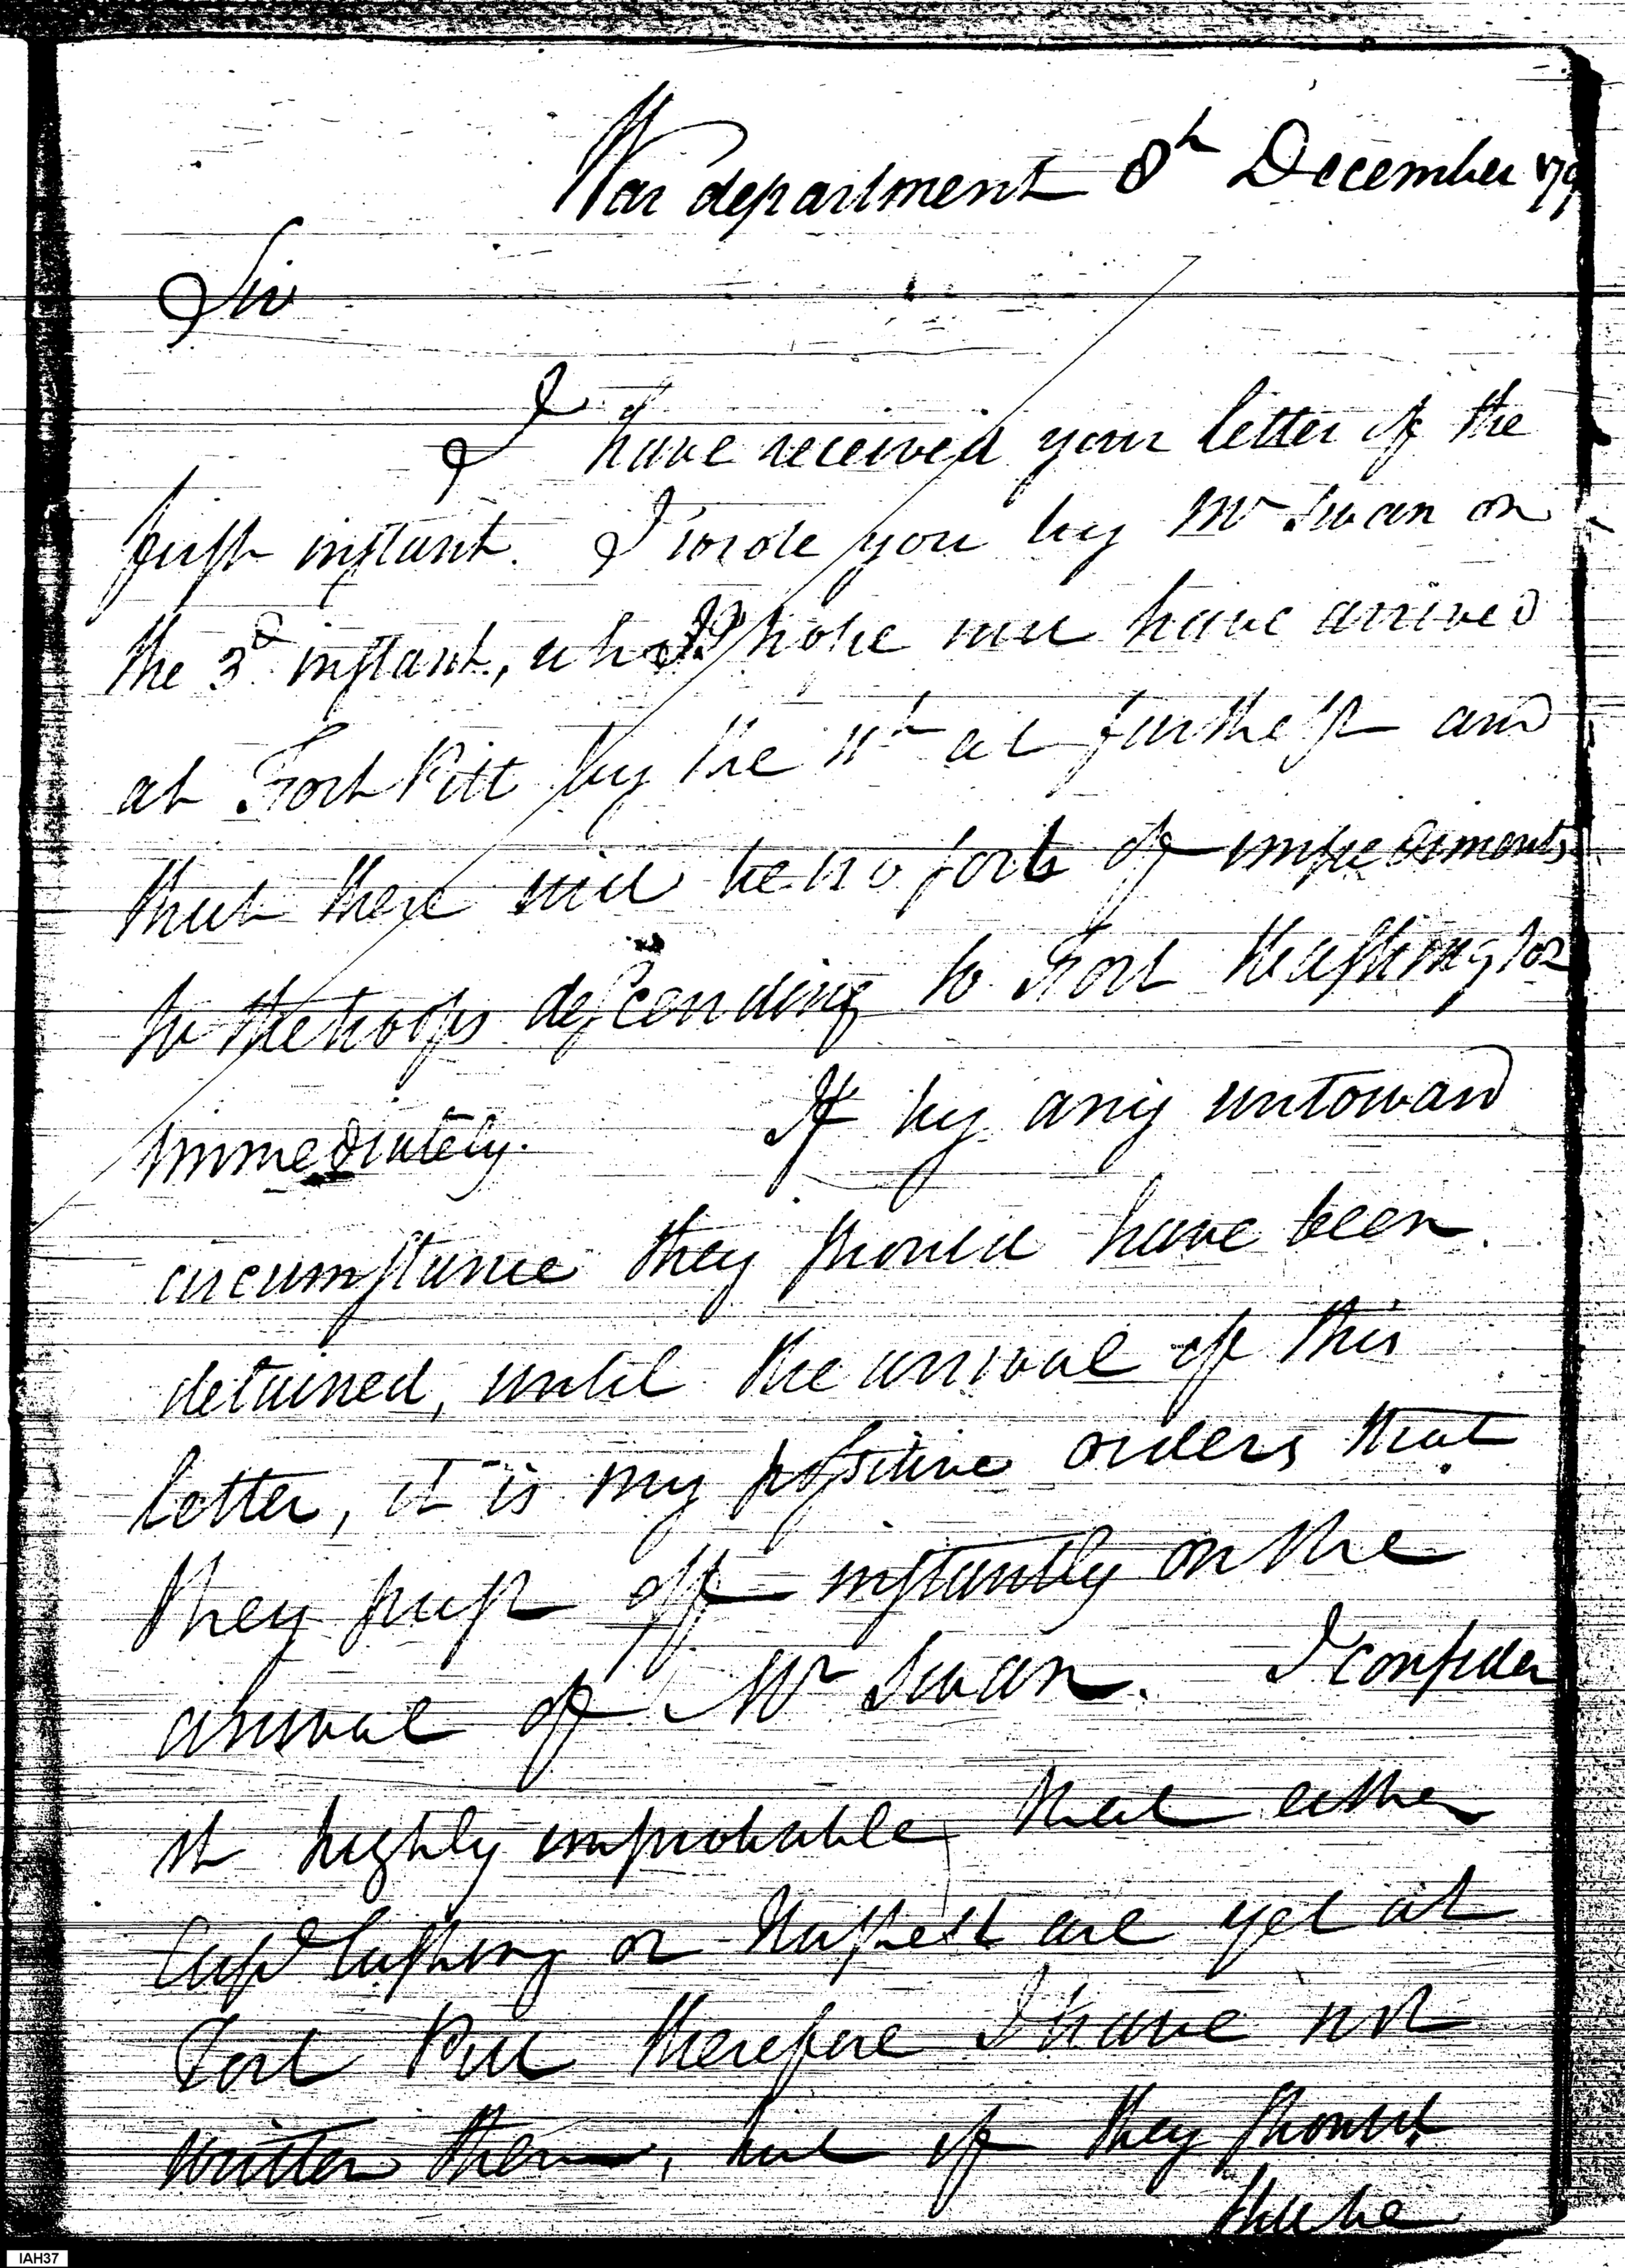 War department 8h December 179
Sir
I have received your letter of the
first instant. I wrote you by Mr Swan on
the 3d instant, who I hope will have arrived
at Fort Pitt by the 11th at furthest and
that there will be no sort of impediments
to the troops descending to Fort Washington
immediately. If by any untoward
circumstance they should have been
detained, until the arrival of this
letter, it is my positive orders that
they push off instantly on the
arrival of Mr Swan. I consider
it highly improbable that either
Capt Cushing or are yet at
Fort Pitt therefore I have not
written them, but if they should
still be
IAH37